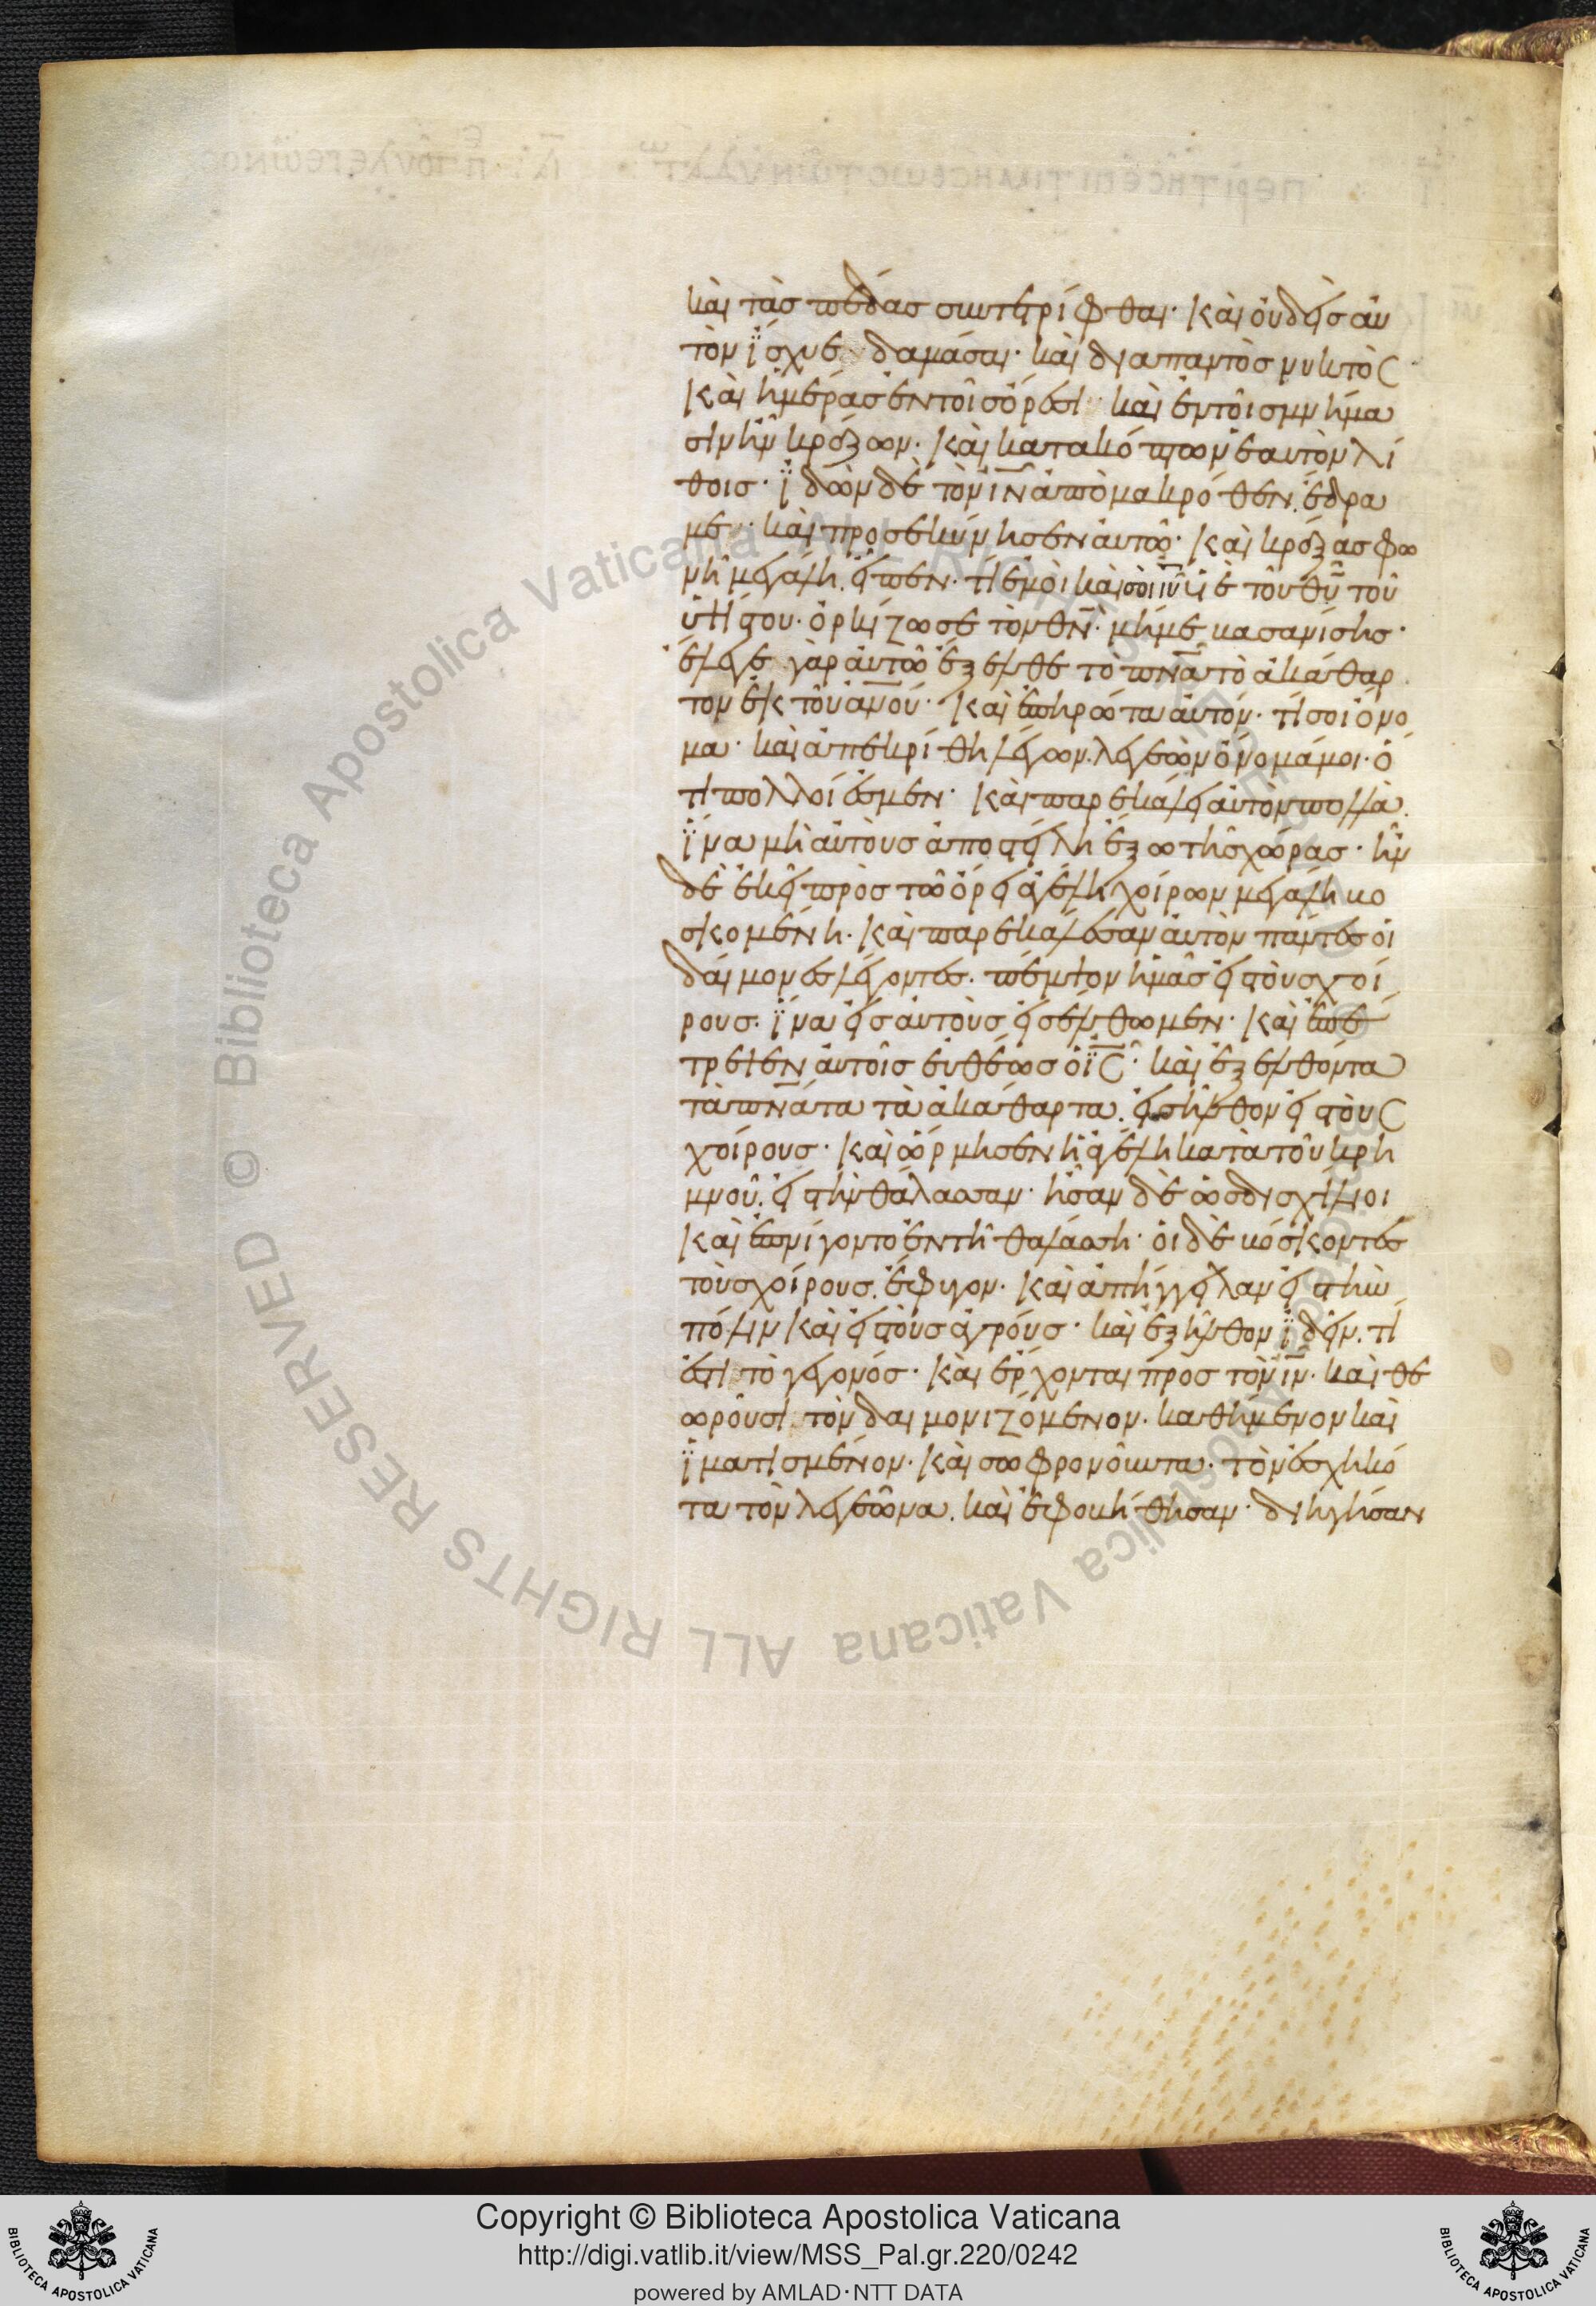 καὶ τὰσ πέδασ συντετρίφθαι· καὶ οὐδεὶσ αὐ
τὸν ἴσχυε δαμάσαι· καὶ διαπαντὸσ νυκτὸς
καὶ ἡμέρασ ἐν τοῖσ ὄρεσι· καὶ ἐν τοῖσ μνήμα
σιν ἦν κράζων· καὶ κατακόπτων ἑαυτὸν λί
θοισ· ἰδὼν δὲ τὸν ι̅ν̅ ἀπὸ μακρόθεν. ἔδρα
μεν· καὶ προσεκύνησεν αὐτῶ· καὶ κράξασ φω
νῆ μεγάλη. εἶπεν· τί ἐμοὶ καὶ σοὶ ι̅υ̅ υἱὲ τοῦ θ̅υ̅ τοῦ
ὑψίστου· ὁρκίζω σε τὸν θ̅ν̅· μή με βασανίσησ·
ἔλεγε γὰρ αὐτῶ ἔξελθε τὸ π̅ν̅α̅ τὸ ἀκάθαρ
τον ἐκ τοῦ α̅ν̅ο̅υ̅· καὶ ἐπηρώτα αὐτόν· τί σοι ὄνο
μα· καὶ ἀπεκρίθη λέγων. λεγεὼν ὄνομά μοι· ὅ
τι πολλοί ἐσμεν· καὶ παρεκάλει αὐτὸν πολλὰ.
ἵνα μὴ αὐτοὺσ ἀποστείλη ἔξω τῆσ χώρασ· ἦν
δὲ ἐκεῖ πρὸσ τῶ ὄρει ἀγέλη χοίρων μεγάλη βο
σκομένη· καὶ παρεκάλεσαν αὐτὸν πάντεσ οἱ
δαίμονεσ λέγοντεσ· πέμψον ἡμᾶσ εἰσ τοὺσ χοί
ρουσ· ἵνα εἰσ αὐτοὺσ εἰσέλθωμεν· καὶ ἐπέ
τρεψεν αὐτοῖσ εὐθέωσ ὁ ι̅ς̅· καὶ ἐξελθόντα
τὰ π̅ν̅άτα τὰ ἀκάθαρτα. εἰσῆλθον εἰσ τοὺς
χοίρουσ· καὶ ὥρμησεν ἡ ἀγέλη κατὰ τοῦ κρη
μνοῦ. εἰσ τὴν θάλασσαν· ἦσαν δὲ ὡσ δισχίλιοι
καὶ ἐπνίγοντο ἐν τῆ θαλάσση· οἱ δὲ βόσκοντεσ
τοὺσ χοίρουσ. ἔφυγον· καὶ ἀπήγγειλαν εἰσ τὴν
πόλιν καὶ εἰσ τοὺσ ἀγρούσ· καὶ ἐξῆλθον ἰδεῖν. τί
ἐστι τὸ γεγονόσ· καὶ ἔρχονται προσ τὸν ι̅ν̅· καὶ θε
ωροῦσι τὸν δαιμονιζόμενον. καθήμενον καὶ
ἱματισμένον· καὶ σωφρονοῦντα· τὸν ἐσχηκό
τα τὸν λεγεῶνα. καὶ ἐφοβήθησαν· διηγήσαν
Copyright © Biblioteca Apostolica Vaticana
http://digi.vatlib.it/view/MSS_Pal.gr.220/0242
powered by AMLAD·NTT DATA